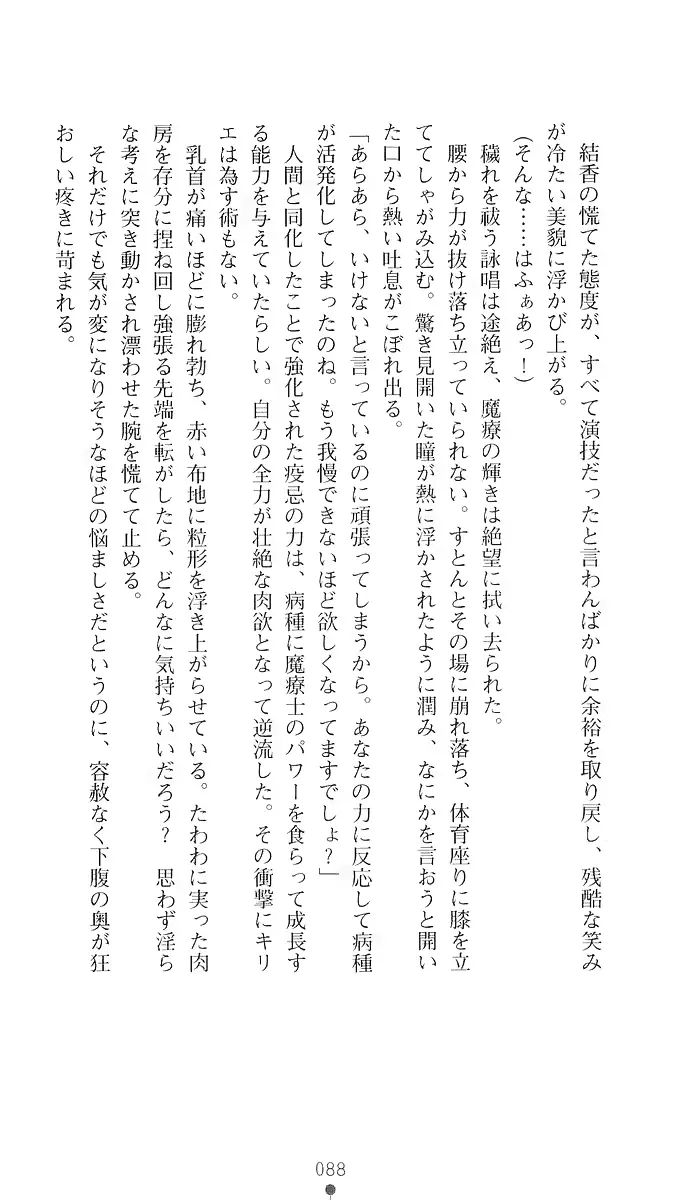 結香の慌てた態度が、すべて演技だったと言わんばかりに余裕を取り戻し、残酷な笑み
が冷たい美貌に浮かび上がる。
(そんな……はふぁあっ！)
穢れを祓う詠唱は途絶え、魔療の輝きは絶望に拭い去られた。
腰から力が抜け落ち立っていられない。すとんとその場に崩れ落ち、体育座りに膝を立
ててしゃがみ込む。驚き見開いた瞳が熱に浮かされたように潤み、なにかを言おうと開い
た口から熱い吐息がこぼれ出る。
「あらあら、いけないと言っているのに頑張ってしまうから。あなたの力に反応して病種
が活発化してしまったのね。もう我慢できないほど欲しくなってますでしょ？」
人間と同化したことで強化された疫忌の力は、病種に魔療士のパワーを食らって成長す
る能力を与えていたらしい。自分の全力が壮絶な肉欲となって逆流した。その衝撃にキリ
エは為す術もない。
乳首が痛いほどに膨れ勃ち、赤い布地に粒形を浮き上がらせている。たわわに実った肉
房を存分に捏ね回し強張る先端を転がしたら、どんなに気持ちいいだろう？　思わず淫ら
な考えに突き動かされ漂わせた腕を慌てて止める。
それだけでも気が変になりそうなほどの悩ましさだというのに、容赦なく下腹の奥が狂
おしい疼きに苛まれる。
088